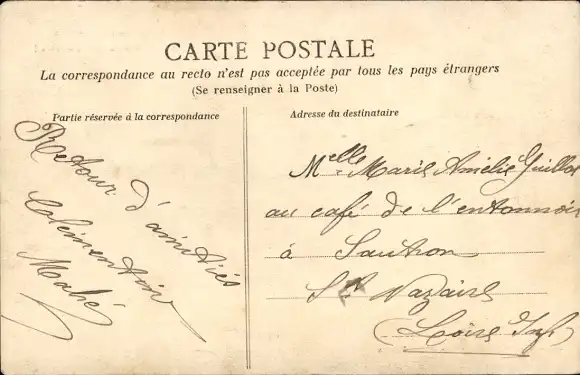 CARTE POSTALE
La correspondance au recto n'est pas acceptée par tous les pays étrangers
(Se renseigner à la Poste)
Partie réservée à la correspondance
Retour d'amitiés
Clémentine
Mahé
Adresse du destinataire
Melle Marie Amélie Guillot
au café de l'entonnoir
à Sautron
St Nazaire
(Loire Inf)